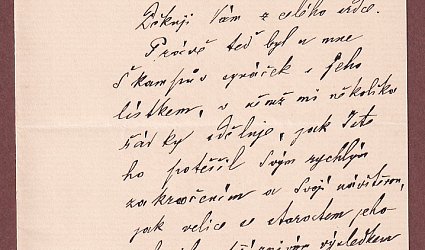 Děkuji Vám z celého srdce.
Právě teď byl u mne
Škampův synáček s jeho
lístkem, v němž mi několika
řádky sděluje, jak Jste
ho potěšil Svým rychlým
zakročením a Svojí návštěvou,
jak velice se starostem jeho
výsledkem